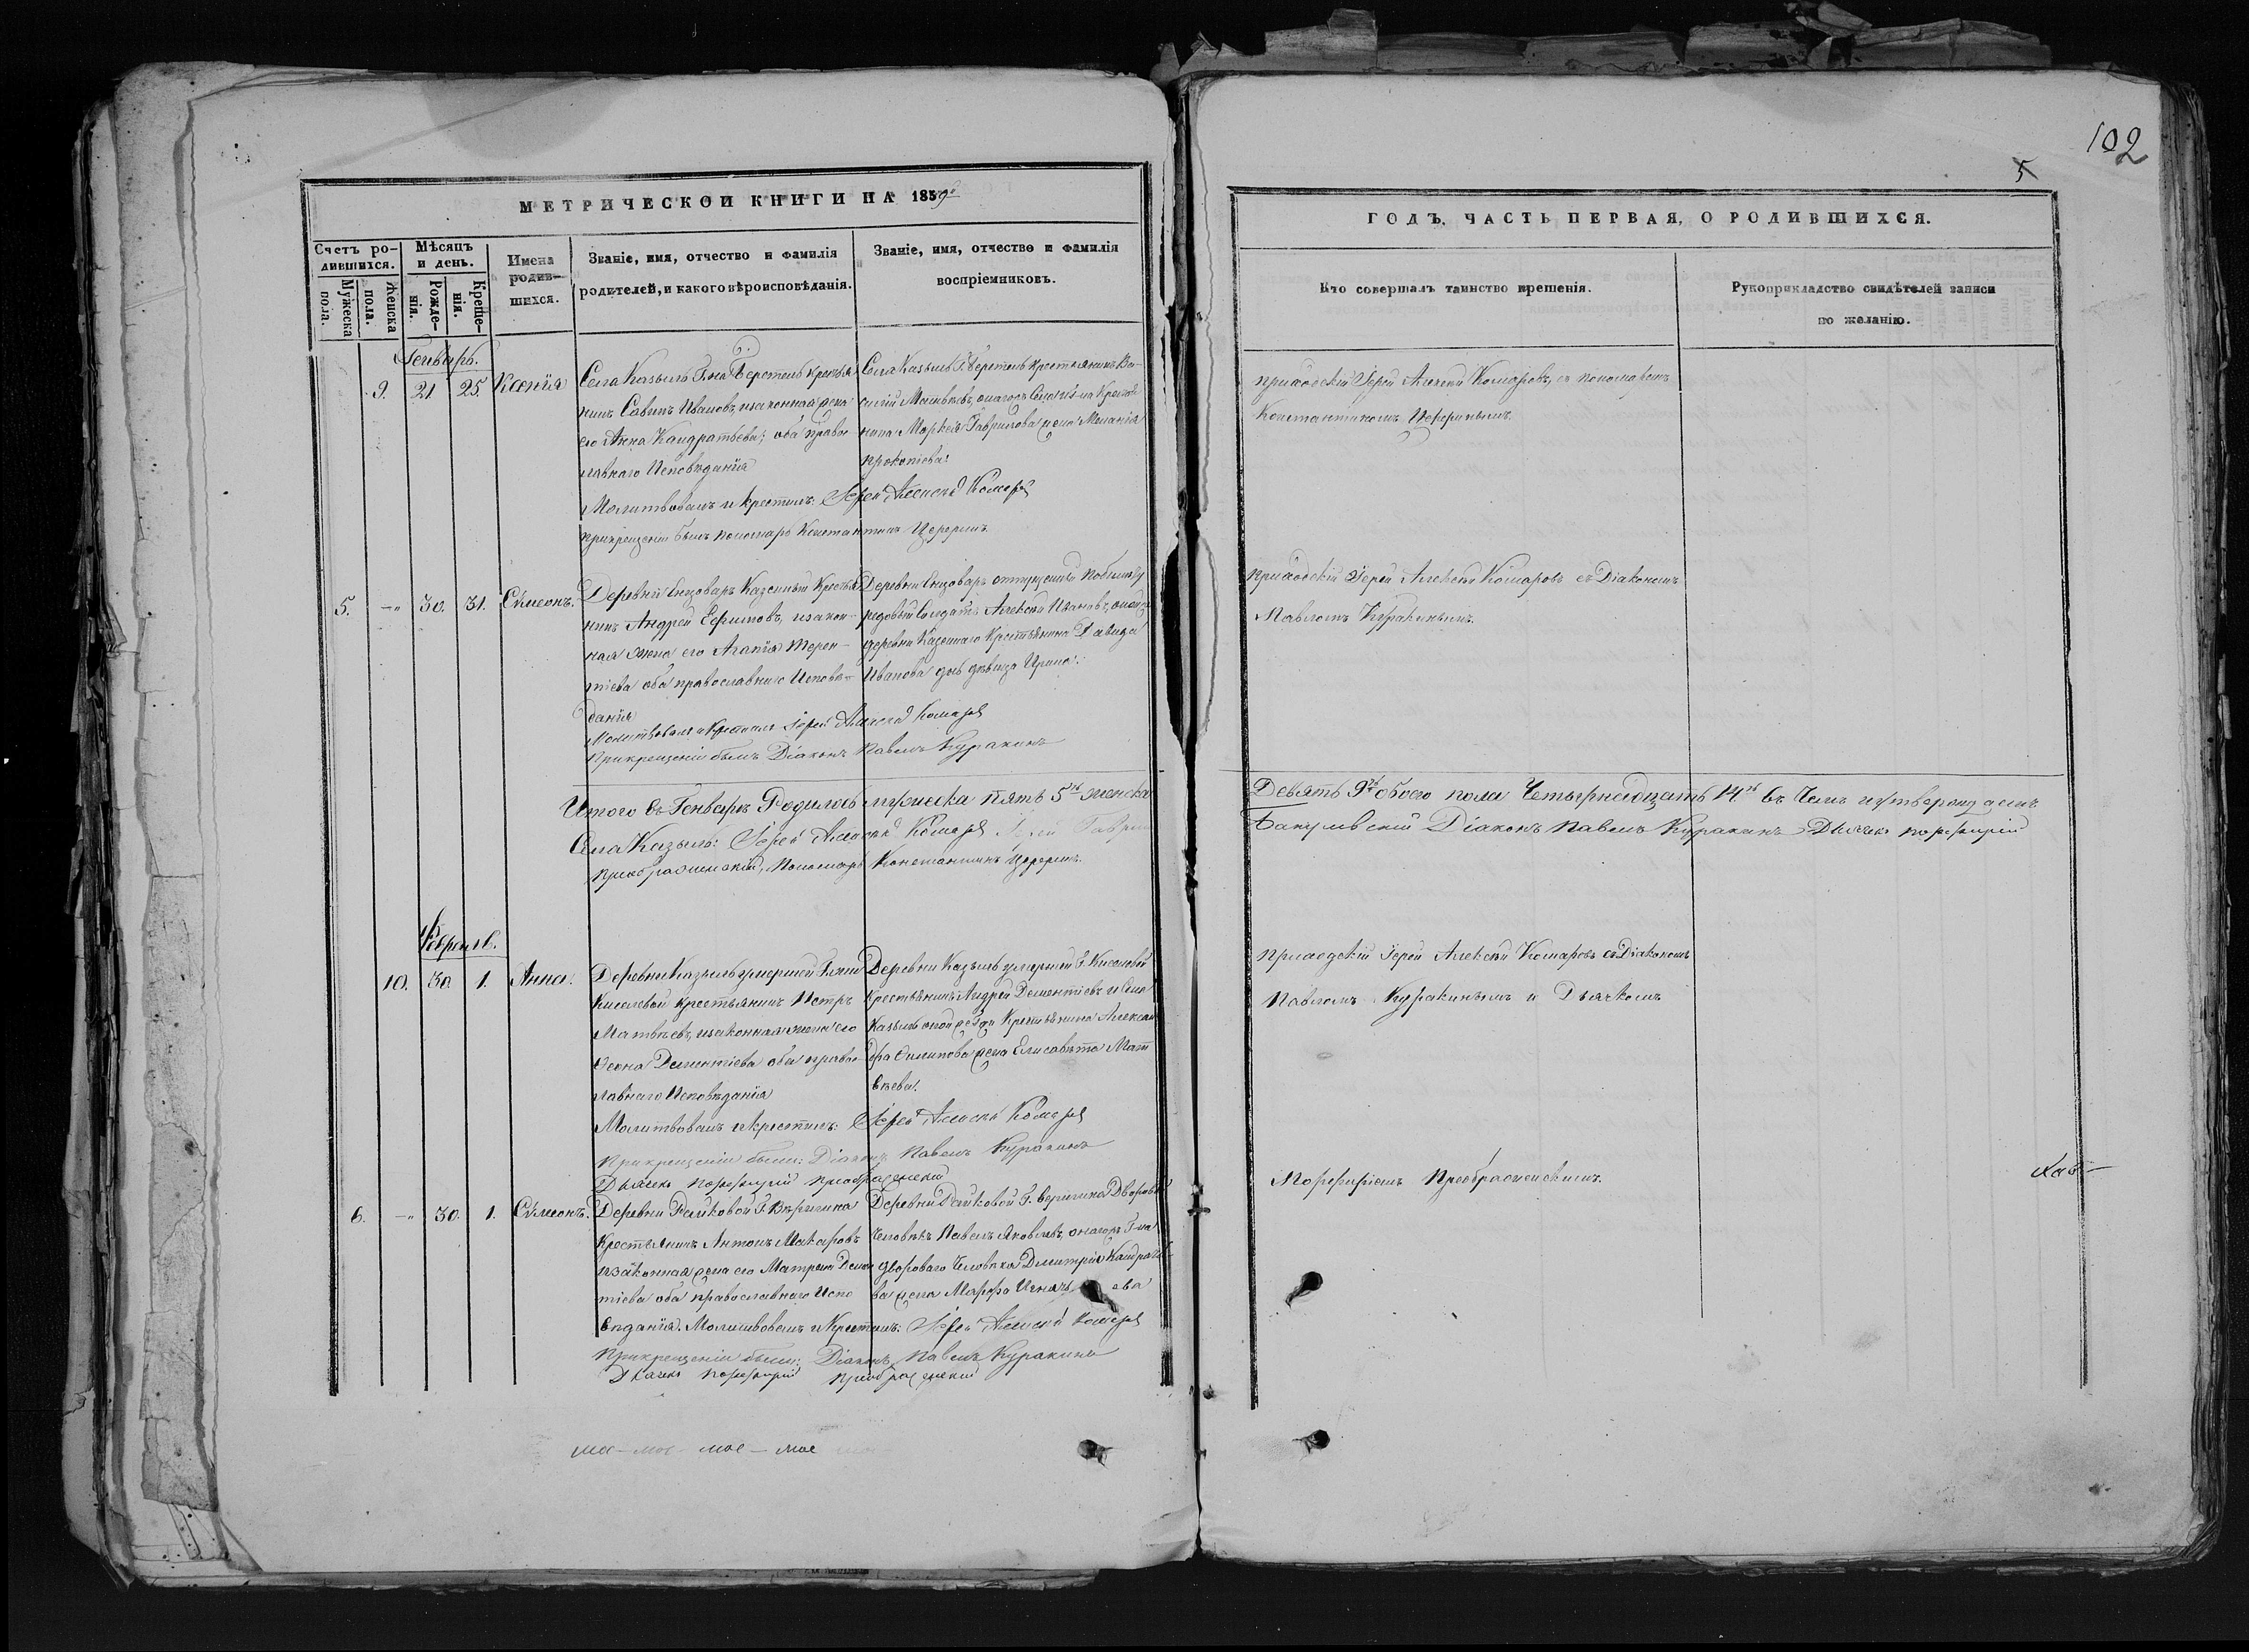 102
5
МЕТРИЧЕСКОЙ КНИГИ НА 1859
ГОДЪ, ЧАСТЬ ПЕРВАЯ, О РОДИВШИХСЯ.
Счетъ ро-
дившихся.
Мужеска
пола.
Женска
пола.
Мѣсяцъ
и день.
Рожде-
нія.
Креще-
нія.
Имена
родив-
шихся.
Званіе, имя, отчество и фамилія
родителей, и какого вѣроисповѣданія.
Званіе, имя, отчество и фамилія
воспріемниковъ.
Кто совершалъ таинство крещенія.
Рукоприкладство свидѣтелей записи
по желанію.
Генварь.
9. 21. 25. Ксенія
Села Казыль Г.на Берстель кресья
нинъ Савинъ Ивановъ, изаконная жена
его Анна Кандратьева; оба право
славнаго Исповѣданія
Молитвовалъ и крестилъ: Іерей Алексѣй Комаровъ
прикрещеніи былъ пономарь Константинъ Цеферинъ
Села Казыль Г. Берстель крестьянинъ Ва-
силій Матвѣевъ, онагожъ Села Г.на Крестья
нина Моркела Гаврилова жена Меланія
Прокопіева.
приходскій Іерей Алексѣй Комаровъ, съ пономаремъ
Константиномъ Цеферинымъ.
5. -" 30. 31. Сѵмеонъ.
Деревни Енговаръ Казенный Крестья
нинъ Андрей Ефимовъ, изакон-
ная жена его Агапія Терен-
тіева оба православнаго Исповѣ-
данія
Молитвовалъ и Крестилъ Іерей Алексѣй Комаровъ
Прикрещеніи былъ Діаконъ Павелъ Куракинъ
Деревни Енговаръ отпущеный побилету
рядовый Солдатъ Алексѣй Ивановъ, оной
деревни Казеннаго Крестьянина Давида
Иванова дочь дѣвица Ирина.
Приходскій Іерей Алексѣй Комаровъ съ Діакономъ
Павломъ Куракинымъ.
Итого въ Генварѣ Родилось мужеска пять 5ть женска
Девять 9ть обоего пола Четырнадцать 14ть въ Чемъ иутверждаемъ
Села Казыль: Іерей Алексѣй Комаровъ
Діаконъ Павелъ Куракинъ Дьячекъ порфирій
Преображенскій, Пономарь Константинъ Цеферинъ.
Февраль.
10. 30. 1. Анна.
Деревни Казыль умершей Г.жи
Киселевой крестьянинъ Петръ
Матвѣевъ, изаконная жена его
Дементіева оба право
славнаго Исповѣданія
Молитвовалъ икрестилъ: Іерей Алексѣй Комаровъ
Прикрещеніи были: Діаконъ Павелъ Куракинъ
Дьячекъ порфирій преображенскій
Деревни Казыль умершей Г. Киселевой
Крестьянинъ Андрей Дементіевъ и Села
Казыль оной Крестьянина Алексан
дра Филипова жена Елисавета Мат
вѣева.
Приходскій Іерей Алексѣй Комаровъ съ Діакономъ
Павломъ Куракинымъ и Дьячкомъ
Порфиріемъ Преображенскимъ.
6. -" 30. 1. Сѵмеонъ.
Деревни Райковой Г. Веригина
Крестьянинъ Антонъ Макаровъ
изаконная жена его Матрена Демен
тіева оба православнаго Испо
вѣданія. Молитвовалъ икрестилъ: Іерей Алексѣй Комаровъ
Прикрещеніи были: Діаконъ Павелъ Куракинъ
Дьячекъ порфирій преображенскій
Деревни Райковой Г. Веригина Дворовый
Человѣкъ Павелъ Яковлевъ, онагожъ Г.на
двороваго Человѣка Димитрія Кандратье
ва жена Марфа
мое - мое - мое - мое